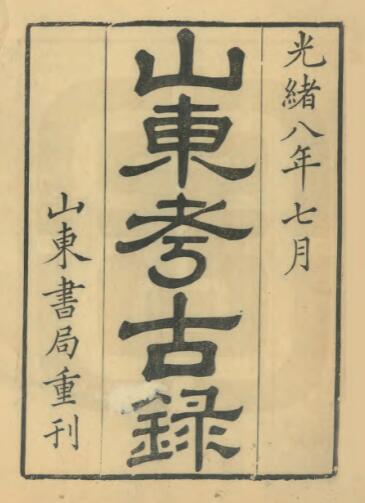 光緒八年七月
山東考古録
山東書局重刊